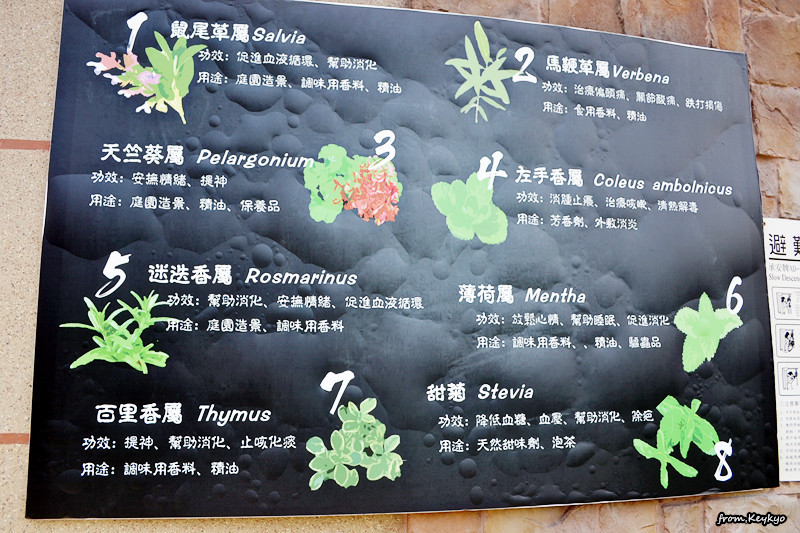 1 鼠尾草屬Salvia
功效：促進血液循環、幫助消化
用途：庭園造景、調味用香料、精油
2 馬鞭草屬Verbena
功效：治療偏頭痛、關節酸痛、跌打損傷
用途：食用香料、精油
天竺葵屬 Pelargonium 3
功效：安撫情緒、提神
用途：庭園造景、精油、保養品
4 左手香屬 Coleus ambolnicus
功效：消腫止癢、治療咳嗽、清熱解毒
用途：芳香劑、外敷消炎
5 迷迭香屬 Rosmarinus
功效：幫助消化、安撫情緒、促進血液循環
用途：庭園造景、調味用香料
薄荷屬 Mentha 6
功效：放鬆心情、幫助睡眠、促進消化
用途：調味用香料、、精油、驅蟲品
百里香屬 Thymus 7
功效：提神、幫助消化、止咳化痰
用途：調味用香料、精油
甜菊 Stevia
功效：降低血糖、血壓、幫助消化、除疤
用途：天然甜味劑、泡茶
8
避難
Slow Descen
from.Keykyo